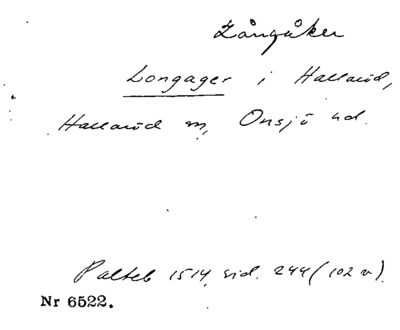 Långåker
Longager i Hallarïd,
Hallarïd sn, Onsjö hd.
Palteb 1514, sid. 244 (102 v).
Nr 6522.